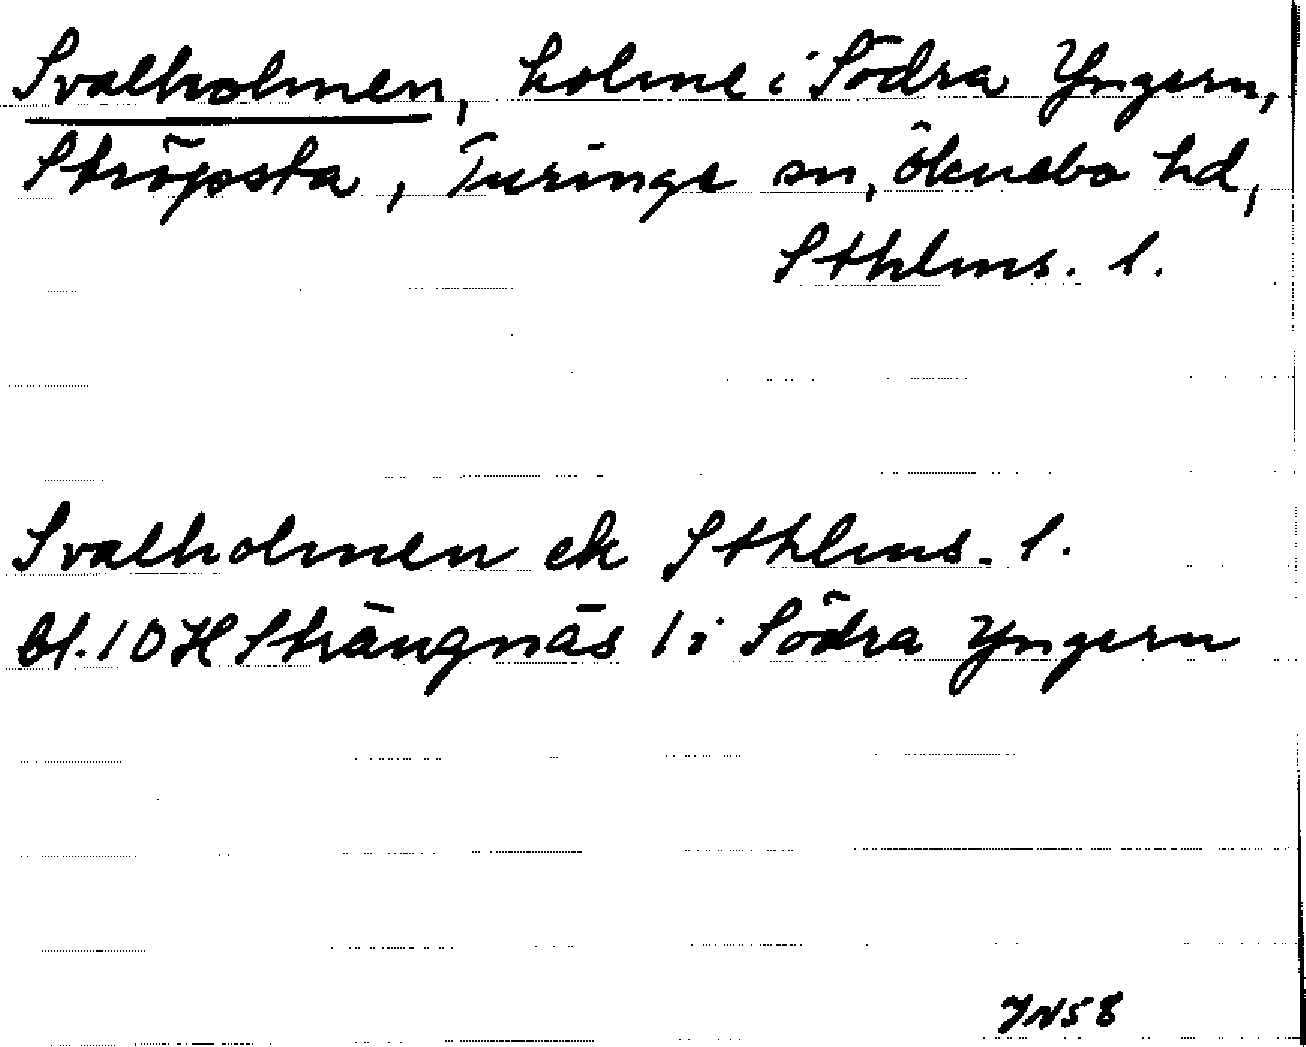 Svalholmen, holme i Södra Yngern,
Ströpsta, Turinge sn, Öknebo hd,
Sthlms. l.
Svalholmen ek Sthlms. l.
bl. 10H Strängnäs 1 i Södra Yngern